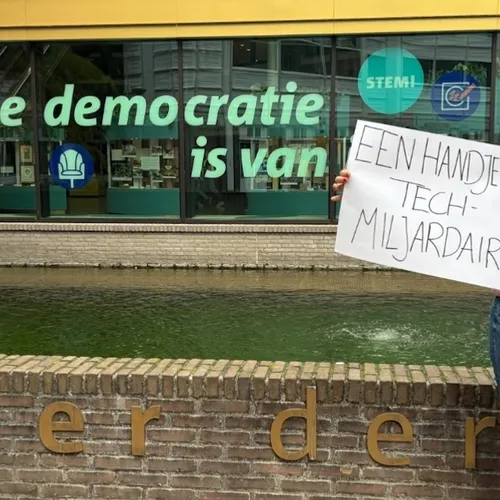 e democratie
is van
STEM!
EEN HANDJE
TECH-
MILJARDAIR
er der